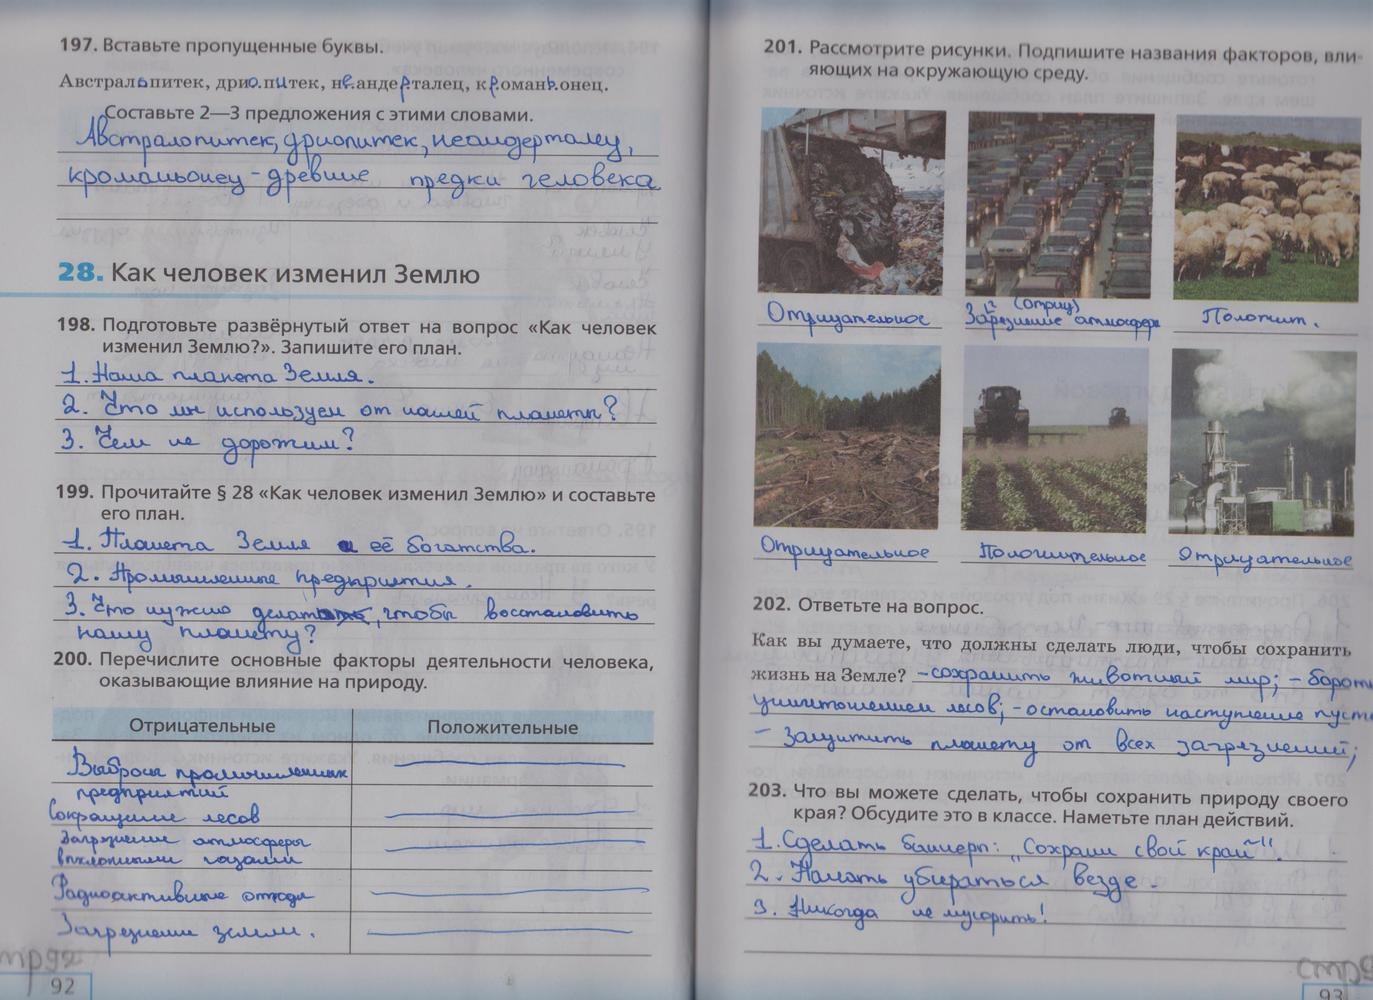 197. Вставьте пропущенные буквы.
Австралопитек, дриопитек, неандерталец, кроманьонец.
Составьте 2—3 предложения с этими словами.
Австралопитек, дриопитек, неандерталец,
кроманьонец - древние предки человека
28. Как человек изменил Землю
198. Подготовьте развёрнутый ответ на вопрос «Как человек
изменил Землю?». Запишите его план.
1. Наша планета Земля.
2. Что мы используем от нашей планеты?
3. Чем не дорожим?
199. Прочитайте § 28 «Как человек изменил Землю» и составьте
его план.
1. Планета Земля и её богатства.
2. Промышленные предприятия.
3. Что нужно делать, чтобы восстановить
нашу планету?
200. Перечислите основные факторы деятельности человека,
оказывающие влияние на природу.
Отрицательные Положительные
Выбросы промышленных
предприятий
Сокращение лесов
Загрязнение атмосферы
выхлопными газами
Радиоактивные отходы
Загрязнение земли.
стр92
92
201. Рассмотрите рисунки. Подпишите названия факторов, вли-
яющих на окружающую среду.
(отриц)
Отрицательное Загрязнение атмосферы Полочит.
Отрицательное Положительное Отрицательное
202. Ответьте на вопрос.
Как вы думаете, что должны сделать люди, чтобы сохранить
жизнь на Земле? - сохранить животный мир; - бороть
уничтожением лесов; - остановить наступление пуст
- Защитить планету от всех загрязнений;
203. Что вы можете сделать, чтобы сохранить природу своего
края? Обсудите это в классе. Наметьте план действий.
1. Сделать баннеры: "Сохрани свой край".
2. Начать убираться везде.
3. Никогда не мусорить!
стр9
93